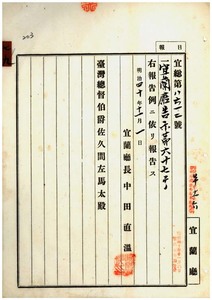 報 日
宜總第八六一二號
一宜蘭廳告示第六十七號
右報告例ニ依リ報告ス
明治四十年十一月一日
宜蘭廳長中田直溫
臺灣總督伯爵佐久間左馬太殿
宜蘭廳